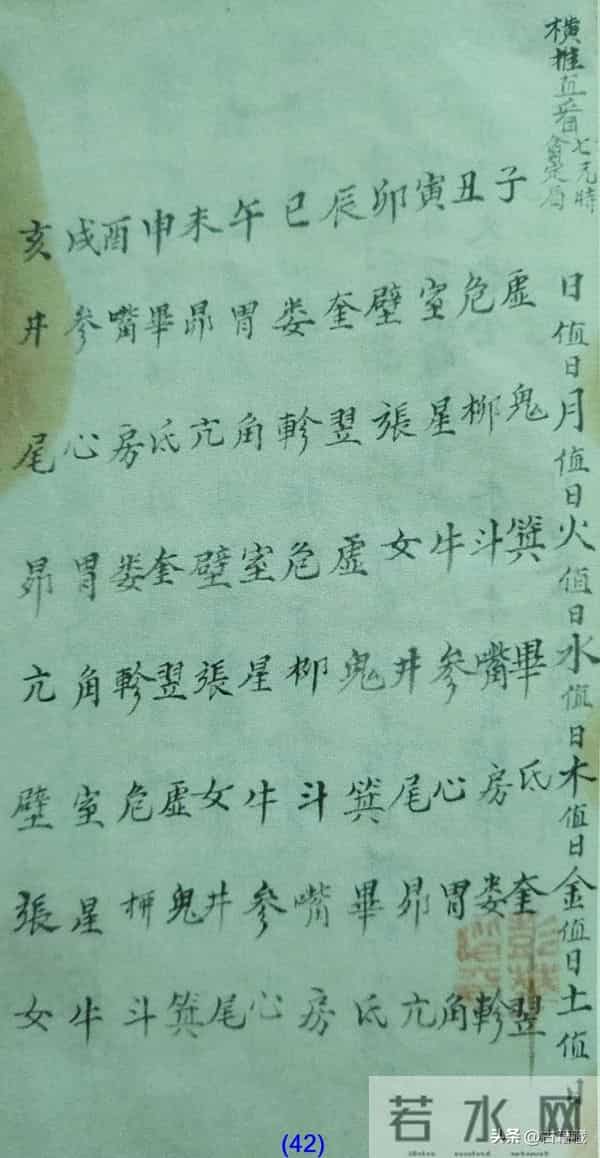 横推直看
七元時
禽定局
子丑寅卯辰巳午未申酉戌亥
日值日虛危室壁奎娄胃昴畢嘴参井
月值日鬼柳星張翌軫角亢氐房心尾
火值日箕斗牛女虛危室壁奎娄胃昴
水值日畢嘴参井鬼柳星張翌軫角亢
木值日氐房心尾箕斗牛女虛危室壁
金值日奎娄胃昴畢嘴参井鬼柳星張
土值日翌軫角亢氐房心尾箕斗牛女
若水网
头条
(42)